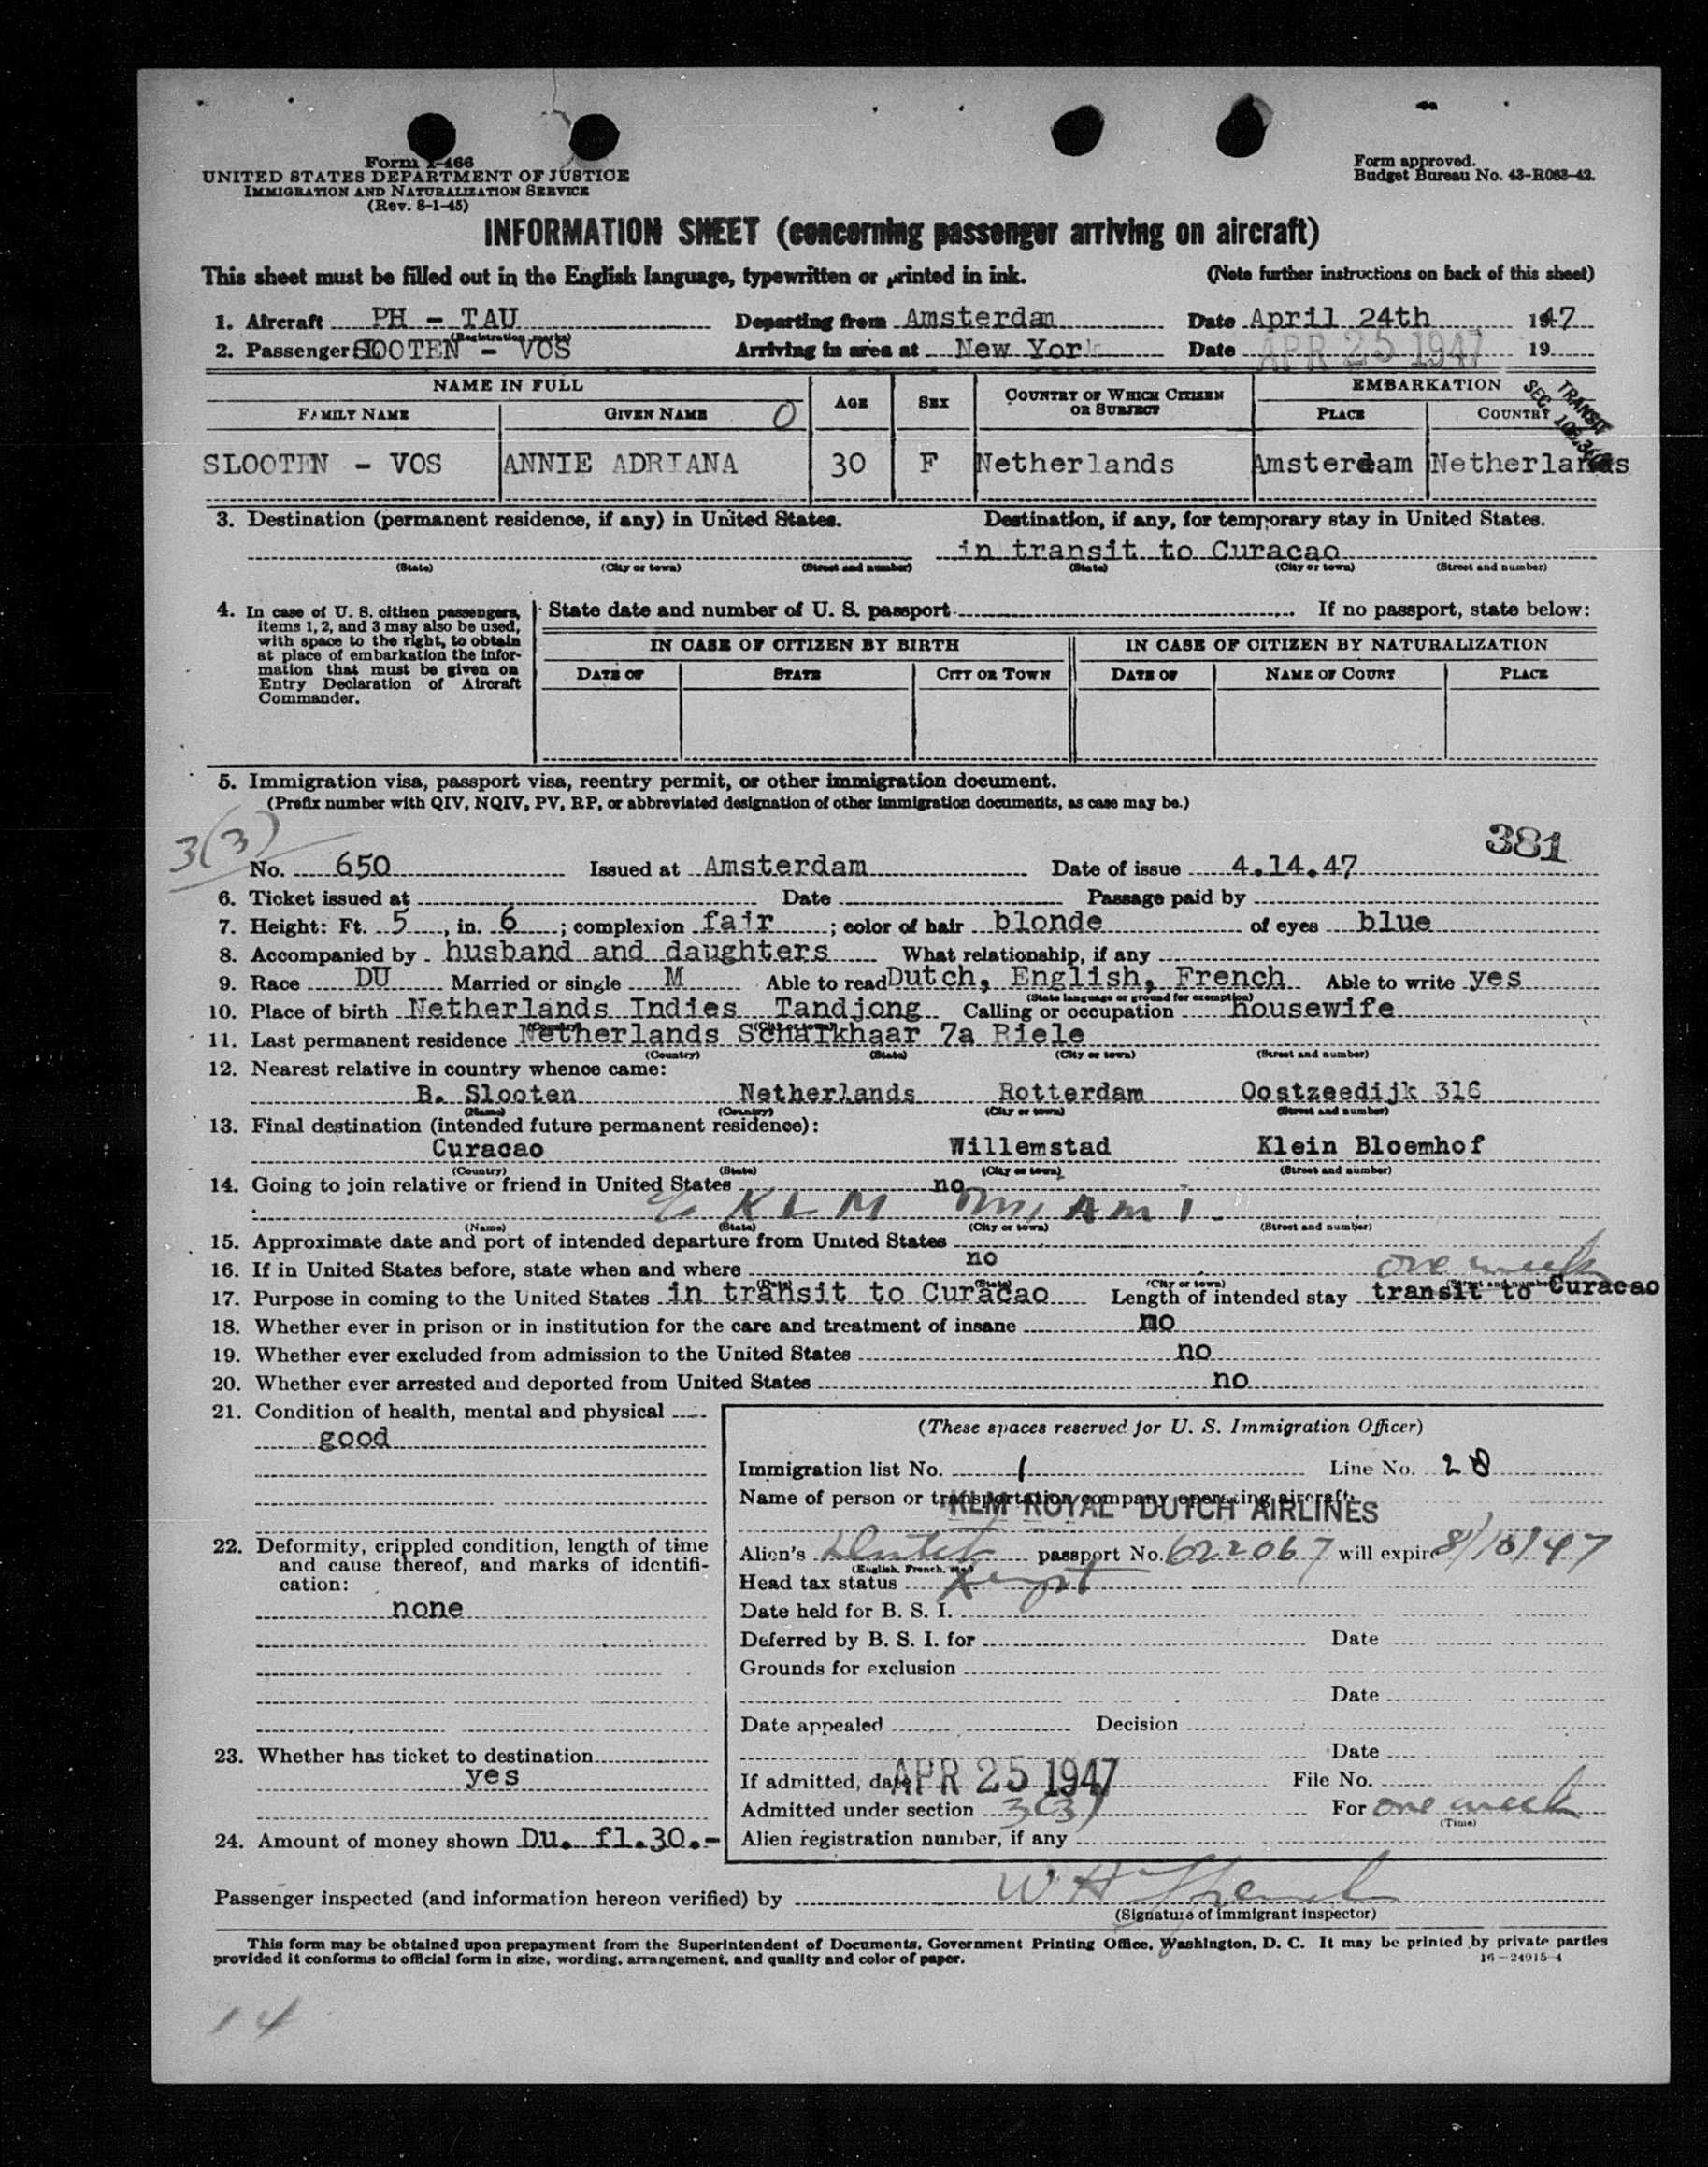 Form I-466
UNITED STATES DEPARTMENT OF JUSTICE
IMMIGRATION AND NATURALIZATION SERVICE
(Rev. 8-1-45)
Form approved.
Budget Bureau No. 43-R083-42.
INFORMATION SHEET (concerning passenger arriving on aircraft)
This sheet must be filled out in the English language, typewritten or printed in ink. (Note further instructions on back of this sheet)
1. Aircraft PH - TAU Departing from Amsterdam Date April 24th 1947
(Registration marks)
2. Passenger SLOOTEN - VOS Arriving in area at New York Date APR 25 1947 19
NAME IN FULL AGE SEX COUNTRY OF WHICH CITIZEN OR SUBJECT EMBARKATION
FAMILY NAME GIVEN NAME 0 PLACE COUNTRY
TRANSIT
SEC.
SLOOTEN - VOS ANNIE ADRIANA 30 F Netherlands Amsterdam Netherlands
3. Destination (permanent residence, if any) in United States. Destination, if any, for temporary stay in United States.
in transit to Curacao
(State) (City or town) (Street and number) (State) (City or town) (Street and number)
4. In case of U. S. citizen passengers, items 1, 2, and 3 may also be used, with space to the right, to obtain at place of embarkation the information that must be given on Entry Declaration of Aircraft Commander.
State date and number of U. S. passport If no passport, state below:
IN CASE OF CITIZEN BY BIRTH IN CASE OF CITIZEN BY NATURALIZATION
DATE OF STATE CITY OR TOWN DATE OF NAME OF COURT PLACE
5. Immigration visa, passport visa, reentry permit, or other immigration document.
(Prefix number with QIV, NQIV, PV, RP, or abbreviated designation of other immigration documents, as case may be.)
3(3) 381
No. 650 Issued at Amsterdam Date of issue 4.14.47
6. Ticket issued at Date Passage paid by
7. Height: Ft. 5, in. 6; complexion fair; color of hair blonde of eyes blue
8. Accompanied by husband and daughters What relationship, if any
9. Race DU Married or single M Able to read Dutch, English, French Able to write yes
(State language or ground for exemption)
10. Place of birth Netherlands Indies Tandjong Calling or occupation housewife
(Country) (City or town)
11. Last permanent residence Netherlands Scharkhaar 7a Riele
(Country) (State) (City or town) (Street and number)
12. Nearest relative in country whence came:
B. Slooten Netherlands Rotterdam Oostzeedijk 316
(Name) (Country) (City or town) (Street and number)
13. Final destination (intended future permanent residence):
Curacao Willemstad Klein Bloemhof
(Country) (State) (City or town) (Street and number)
14. Going to join relative or friend in United States no
c/o KLM Miami.
(Name) (State) (City or town) (Street and number)
15. Approximate date and port of intended departure from United States
16. If in United States before, state when and where no one week
(Date) (State) (City or town) (Street and number)
17. Purpose in coming to the United States in transit to Curacao Length of intended stay transit to Curacao
18. Whether ever in prison or in institution for the care and treatment of insane no
19. Whether ever excluded from admission to the United States no
20. Whether ever arrested and deported from United States no
21. Condition of health, mental and physical
good
22. Deformity, crippled condition, length of time and cause thereof, and marks of identification:
none
23. Whether has ticket to destination
yes
24. Amount of money shown Du. fl.30.-
(These spaces reserved for U. S. Immigration Officer)
Immigration list No. 1 Line No. 28
Name of person or transportation company operating aircraft
KLM ROYAL DUTCH AIRLINES
Alien's Dutch passport No. 622067 will expire 8/10/47
(English, French, etc.)
Head tax status Exempt
Date held for B. S. I.
Deferred by B. S. I. for Date
Grounds for exclusion
Date
Date appealed Decision
Date
If admitted, date APR 25 1947 File No.
Admitted under section 3(3) For one week
(Time)
Alien registration number, if any
Passenger inspected (and information hereon verified) by W H
(Signature of immigrant inspector)
This form may be obtained upon prepayment from the Superintendent of Documents, Government Printing Office, Washington, D. C. It may be printed by private parties
provided it conforms to official form in size, wording, arrangement, and quality and color of paper. 16-24915-4
14